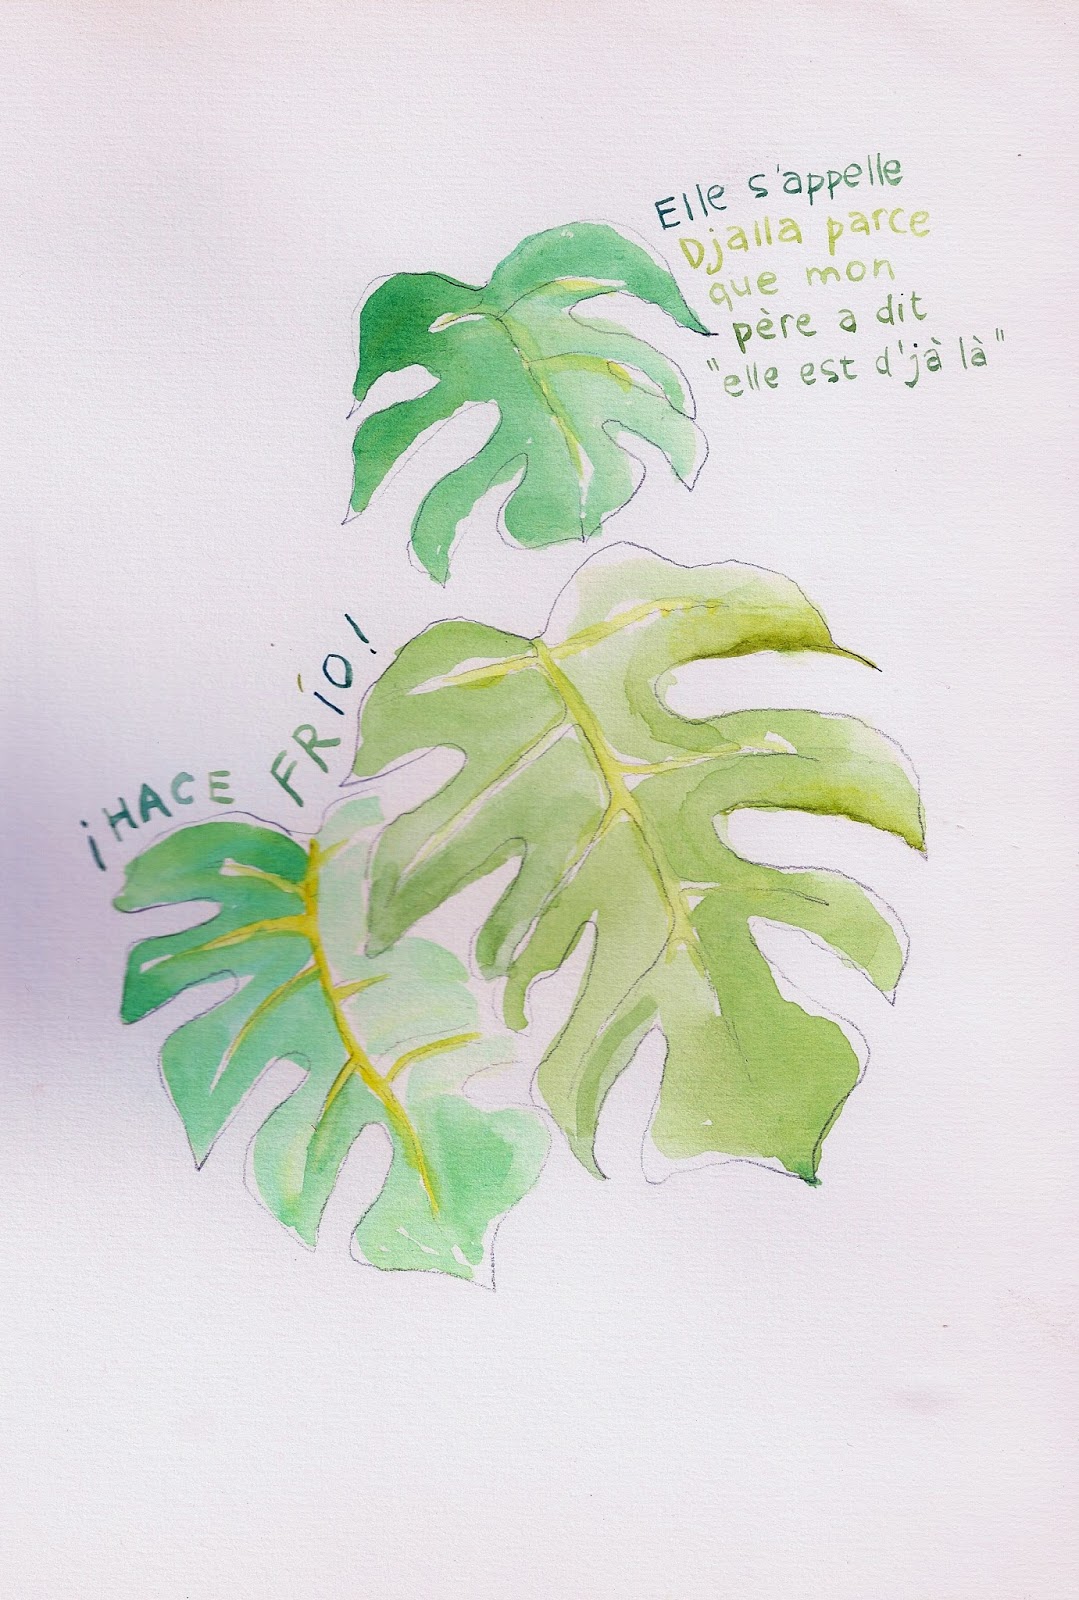 Elle s'appelle
Djalla parce
que mon
père a dit
"elle est d'jà là"
¡HACE FRÍO!